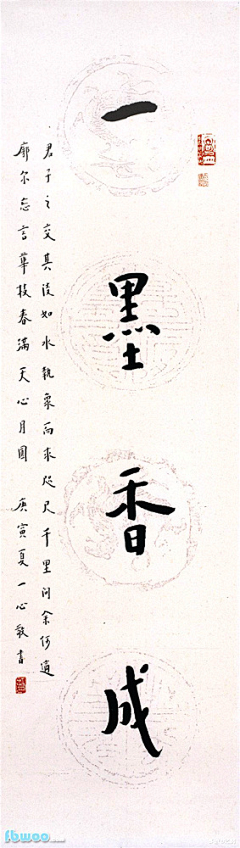 一墨香成
君子之交其淡如水執象而求咫尺千里问余何適
廓尔忘言華枝春滿天心月圓 庚寅夏一心敬書
fbwoo